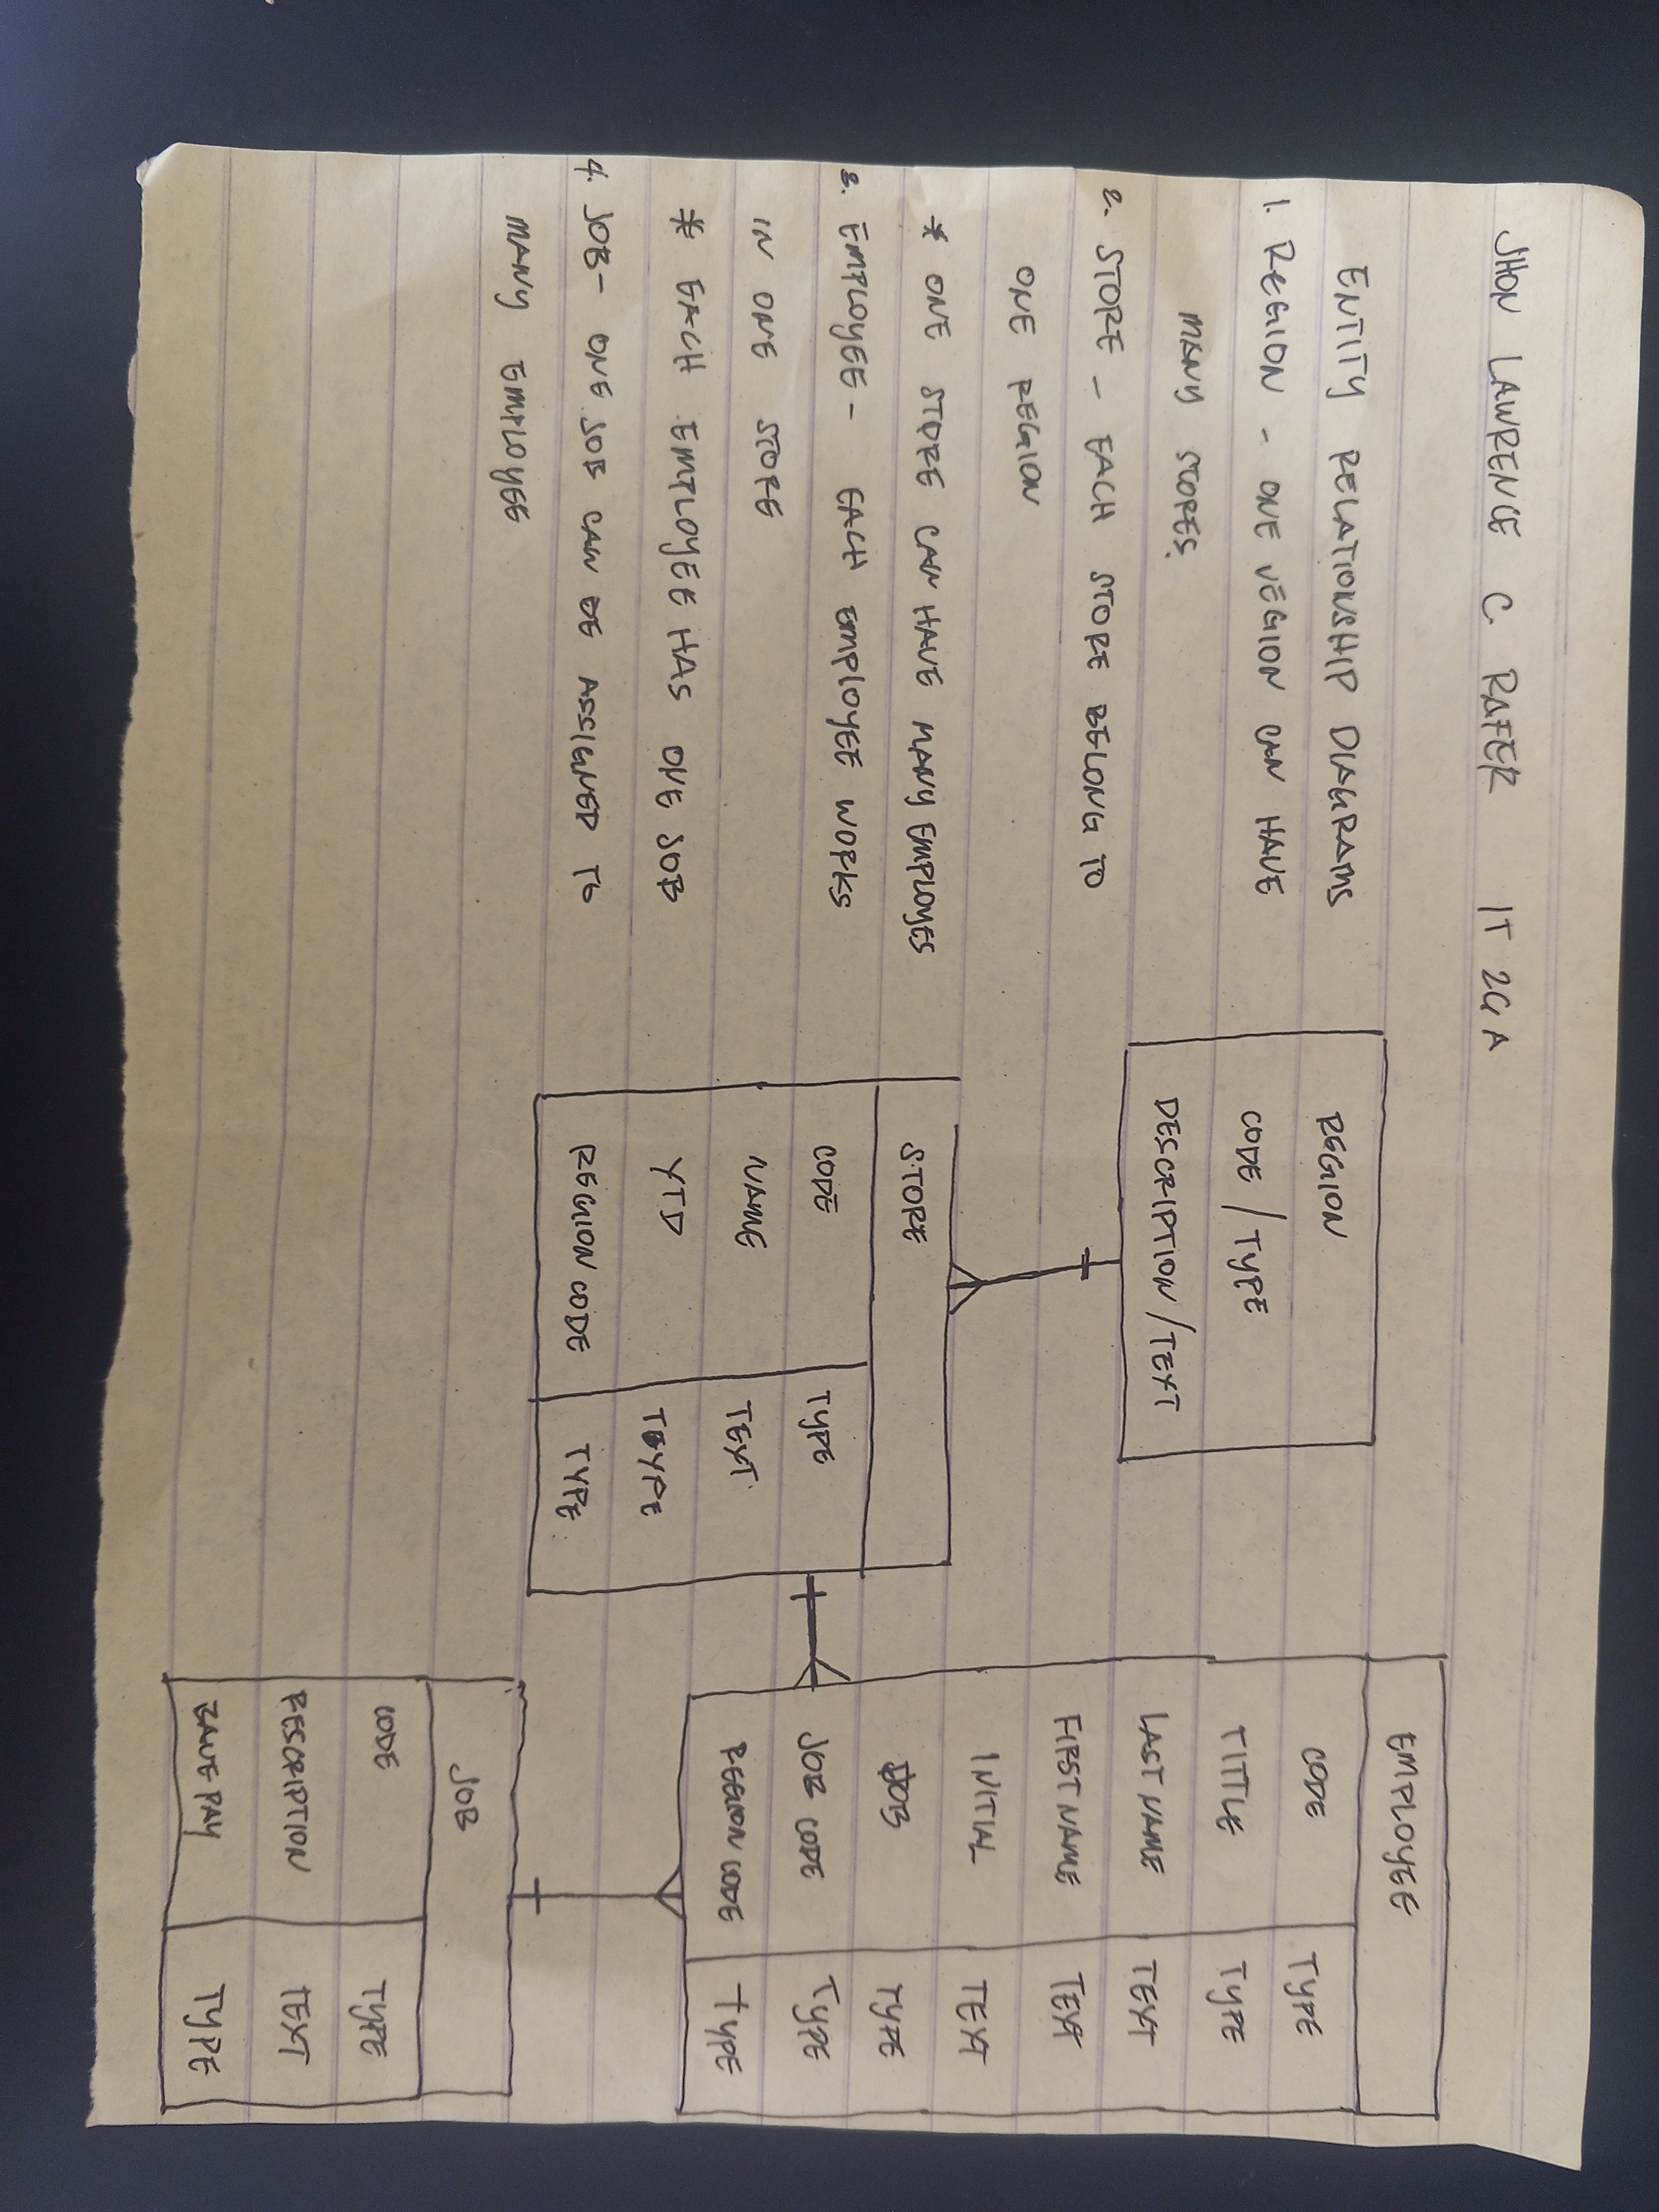 JHON LAWRENCE C RAFER IT 202A
ENTITY RELATIONSHIP DIAGRAMS
1. REGION - ONE REGION CAN HAVE
MANY STORES.
2. STORE - EACH STORE BELONG TO
ONE REGION
* ONE STORE CAN HAVE MANY EMPLOYEES
3. EMPLOYEE - EACH EMPLOYEE WORKS
IN ONE STORE
* EACH EMPLOYEE HAS ONE JOB
4. JOB - ONE JOB CAN BE ASSIGNED TO
MANY EMPLOYEE
REGION
CODE / TYPE
DESCRIPTION / TEXT
STORE
CODE TYPE
NAME TEXT
YTD TYPE
REGION CODE TYPE
EMPLOYEE
CODE TYPE
TITTLE TYPE
LAST NAME TEXT
FIRST NAME TEXT
INITIAL TEXT
DOB TYPE
JOB CODE TYPE
REGION CODE TYPE
JOB
CODE TYPE
DESCRIPTION TEXT
PAY TYPE